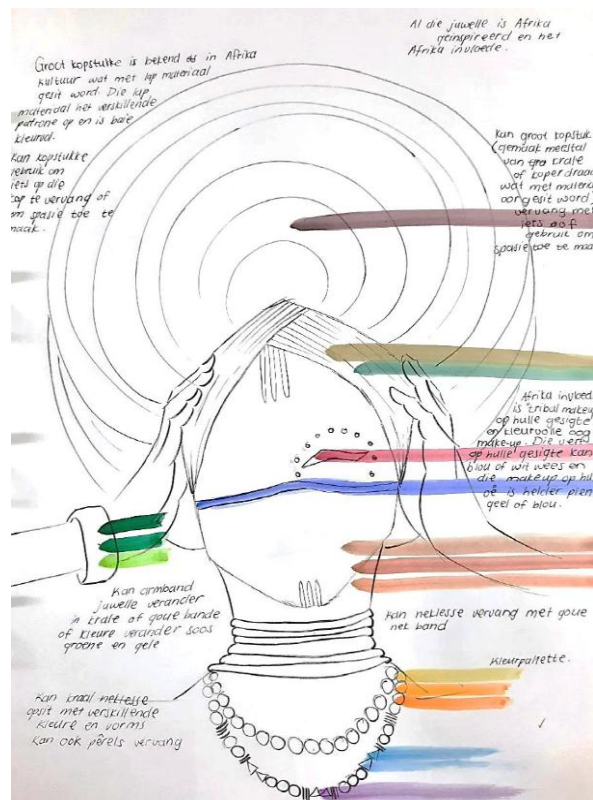 Al die juwelle is Afrika
geïnspireerd en het
Afrika invloede.
Groot kopstukke is bekend as in Afrika
kultuur wat met lap materiaal
gesit word. Die lap
materiaal het verskillende
patrone op en is baie
kleurvol.
Kan kopstukke
gebruik om
iets op die
kop te vervang of
om spasie toe te
maak.
Kan groot kopstuk
(gemaak meestal
van gra krale
of koper draad
wat met materiaal
aangesit word)
vervang met
iets of
gebruik om
spasie toe te maak
Afrika invloed
is tribal makeup
op hulle gesigte
en kleurvolle oog
make-up. Die verf
op hulle gesigte kan
blou of wit wees en
die makeup op hul
oë is helder pienk
geel of blou.
Kan armband
juwelle verander
in krale of goue bande
of kleure verander soos
groene en gele
Kan neklesse vervang met goue
nek band
Kleurpaltette.
Kan kraal neklesse
opsit met verskillende
kleure en vorms
Kan ook pêrels vervang